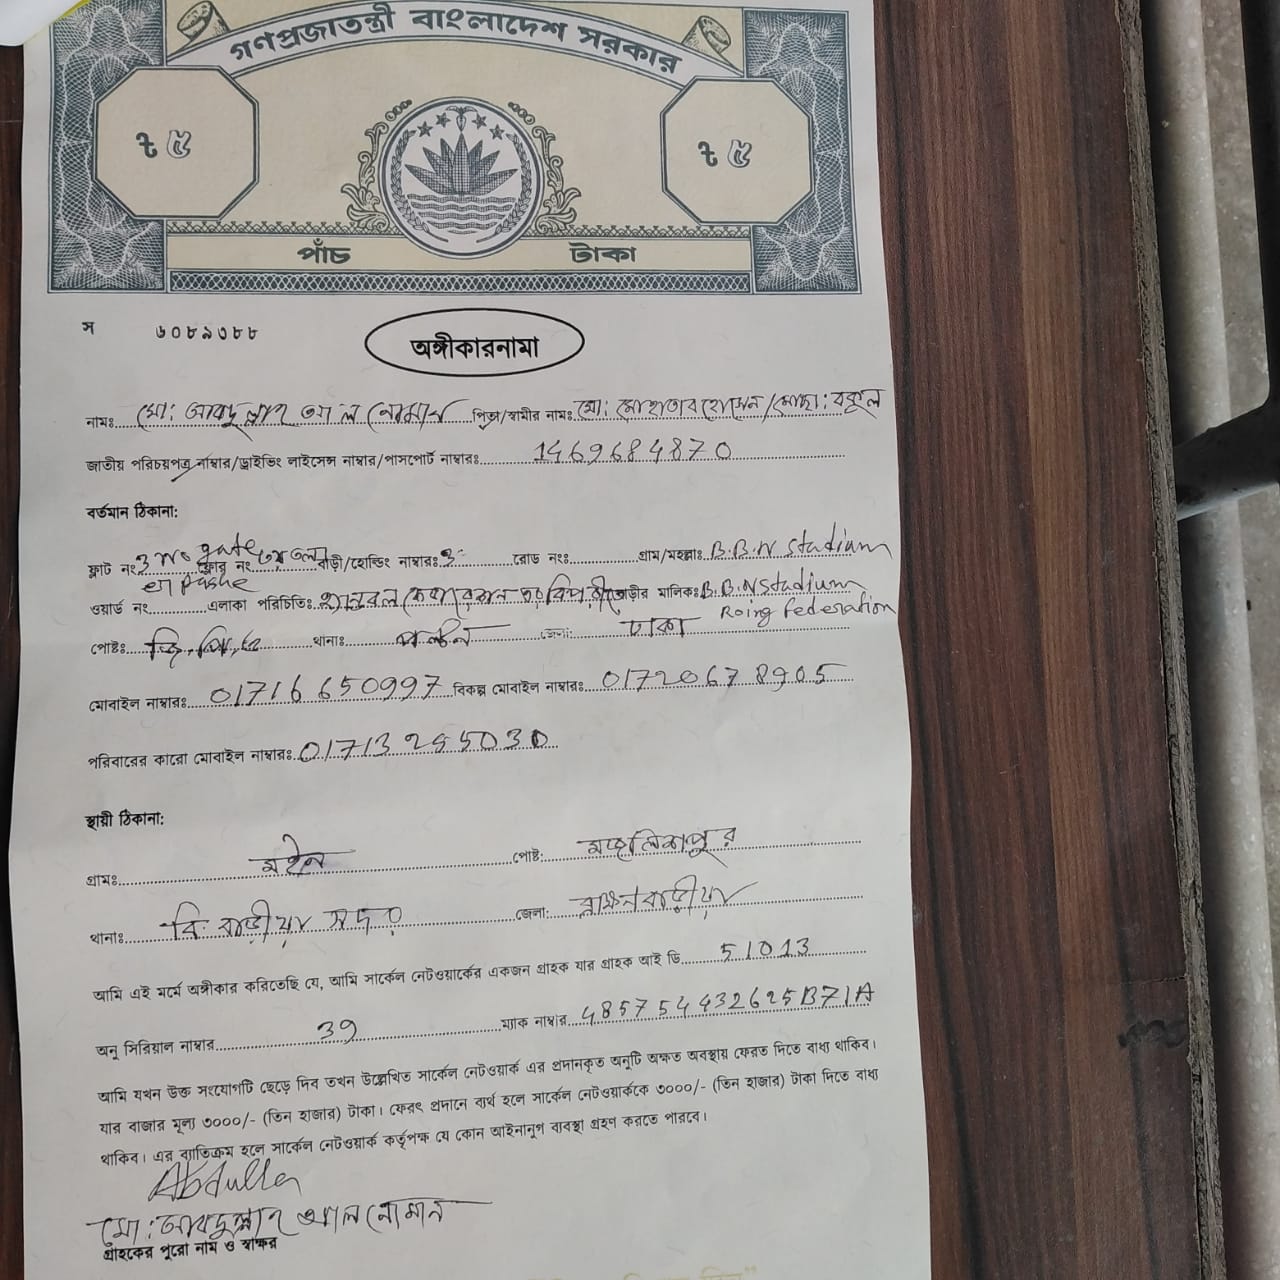 গণপ্রজাতন্ত্রী বাংলাদেশ সরকার
৳ ৫ ৳ ৫
পাঁচ টাকা
স ৬০৮৯৩৮৮
অঙ্গীকারনামা
নামঃ মো: আবদুল্লাহ আল নোমান পিতা/স্বামীর নামঃ মো: মোহাতাব হোসেন/মোছা: বকুল
জাতীয় পরিচয়পত্র নাম্বার/ড্রাইভিং লাইসেন্স নাম্বার/পাসপোর্ট নাম্বারঃ 1469684870
বর্তমান ঠিকানা:
ফ্লাট নং 3 no gate ফ্লোর নং ৩য় তলা বাড়ী/হোল্ডিং নাম্বারঃ 3 রোড নংঃ গ্রাম/মহল্লাঃ B.B.N stadium
er pashe
ওয়ার্ড নং এলাকা পরিচিতিঃ হ্যান্ডবল ফেডারেশন এর বাড়ীর মালিকঃ B.B.N stadium
Roing Federation
পোষ্টঃ জি,পি,ও থানাঃ পল্টন জেলা: ঢাকা
মোবাইল নাম্বারঃ 01716650997 বিকল্প মোবাইল নাম্বারঃ 01720678905
পরিবারের কারো মোবাইল নাম্বারঃ 01713255030
স্থায়ী ঠিকানা:
গ্রামঃ পোষ্ট: মজলিশপুর
থানাঃ বি: বাড়ীয়া সদর জেলা: ব্রাক্ষনবাড়ীয়া
আমি এই মর্মে অঙ্গীকার করিতেছি যে, আমি সার্কেল নেটওয়ার্কের একজন গ্রাহক যার গ্রাহক আই ডি 51013
অনু সিরিয়াল নাম্বার 39 ম্যাক নাম্বার 485754432625B71A
আমি যখন উক্ত সংযোগটি ছেড়ে দিব তখন উল্লেখিত সার্কেল নেটওয়ার্ক এর প্রদানকৃত অনুটি অক্ষত অবস্থায় ফেরত দিতে বাধ্য থাকিব।
যার বাজার মূল্য ৩০০০/- (তিন হাজার) টাকা। ফেরৎ প্রদানে ব্যর্থ হলে সার্কেল নেটওয়ার্ককে ৩০০০/- (তিন হাজার) টাকা দিতে বাধ্য
থাকিব। এর ব্যতিক্রম হলে সার্কেল নেটওয়ার্ক কর্তৃপক্ষ যে কোন আইনানুগ ব্যবস্থা গ্রহণ করতে পারবে।
Abdulla
মো: আবদুল্লাহ আল নোমান
গ্রাহকের পুরো নাম ও স্বাক্ষর